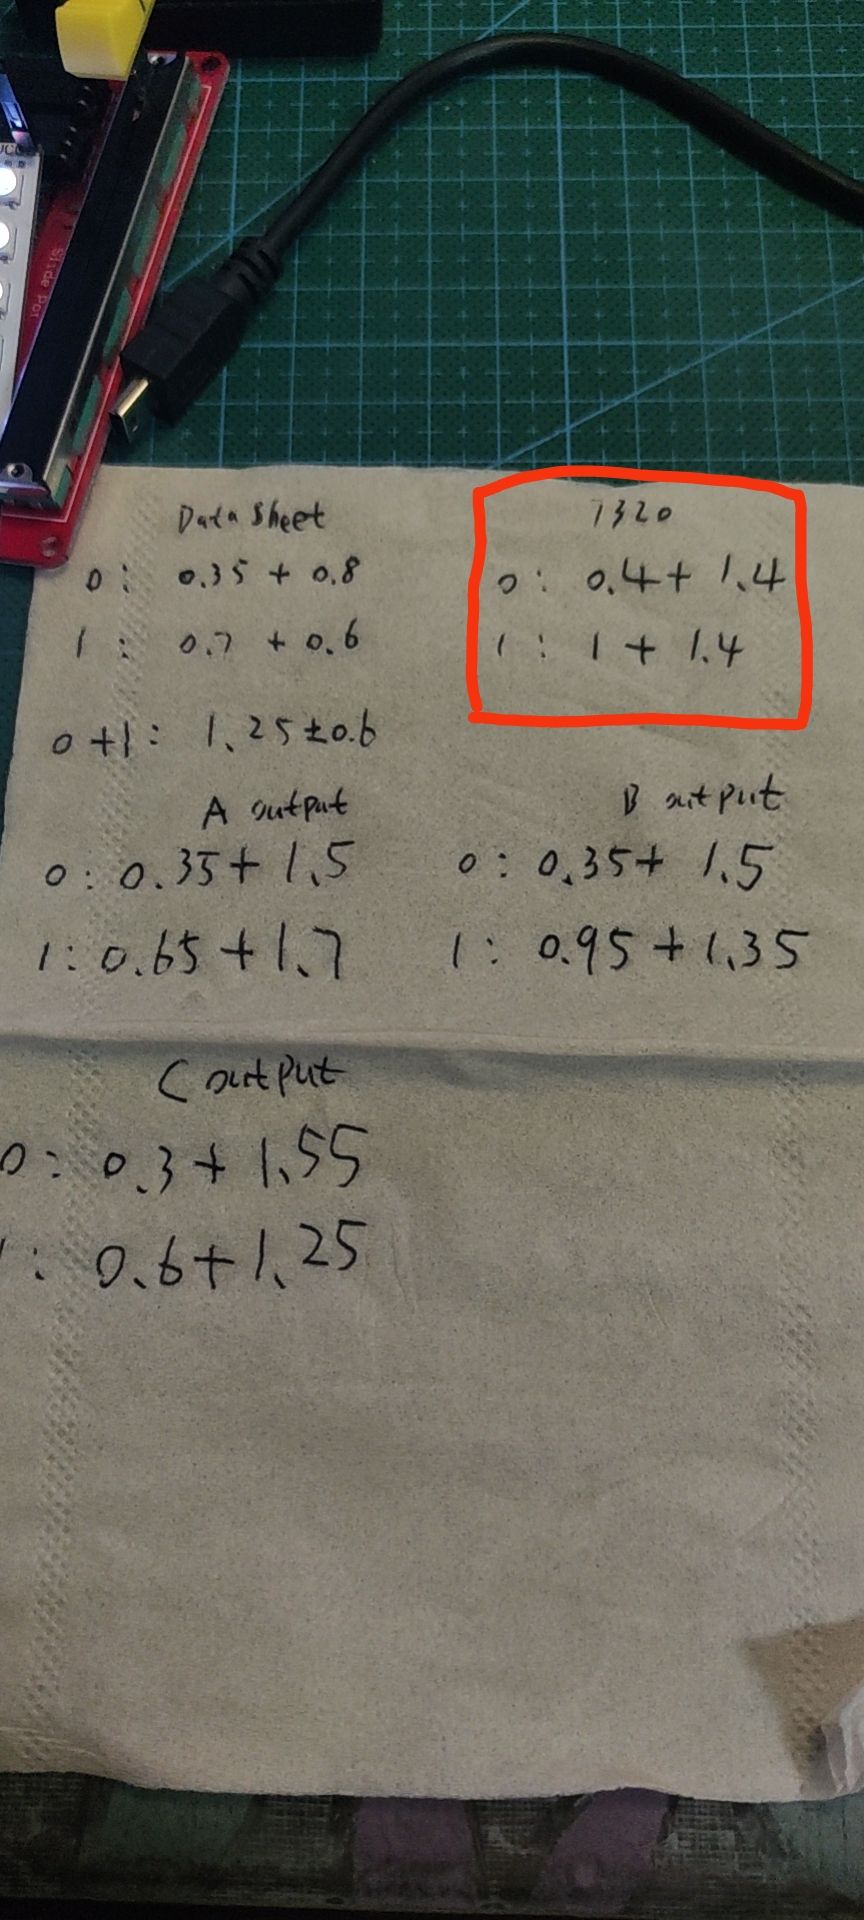 Data Sheet
0: 0.35 + 0.8
1: 0.7 + 0.6
0+1: 1.25±0.6
7320
0: 0.4+ 1.4
1: 1 + 1.4
A output
0: 0.35+ 1.5
1: 0.65+1.7
B output
0: 0.35+ 1.5
1: 0.95+1.35
C output
0: 0.3+ 1.55
: 0.6+1.25
Slide Por